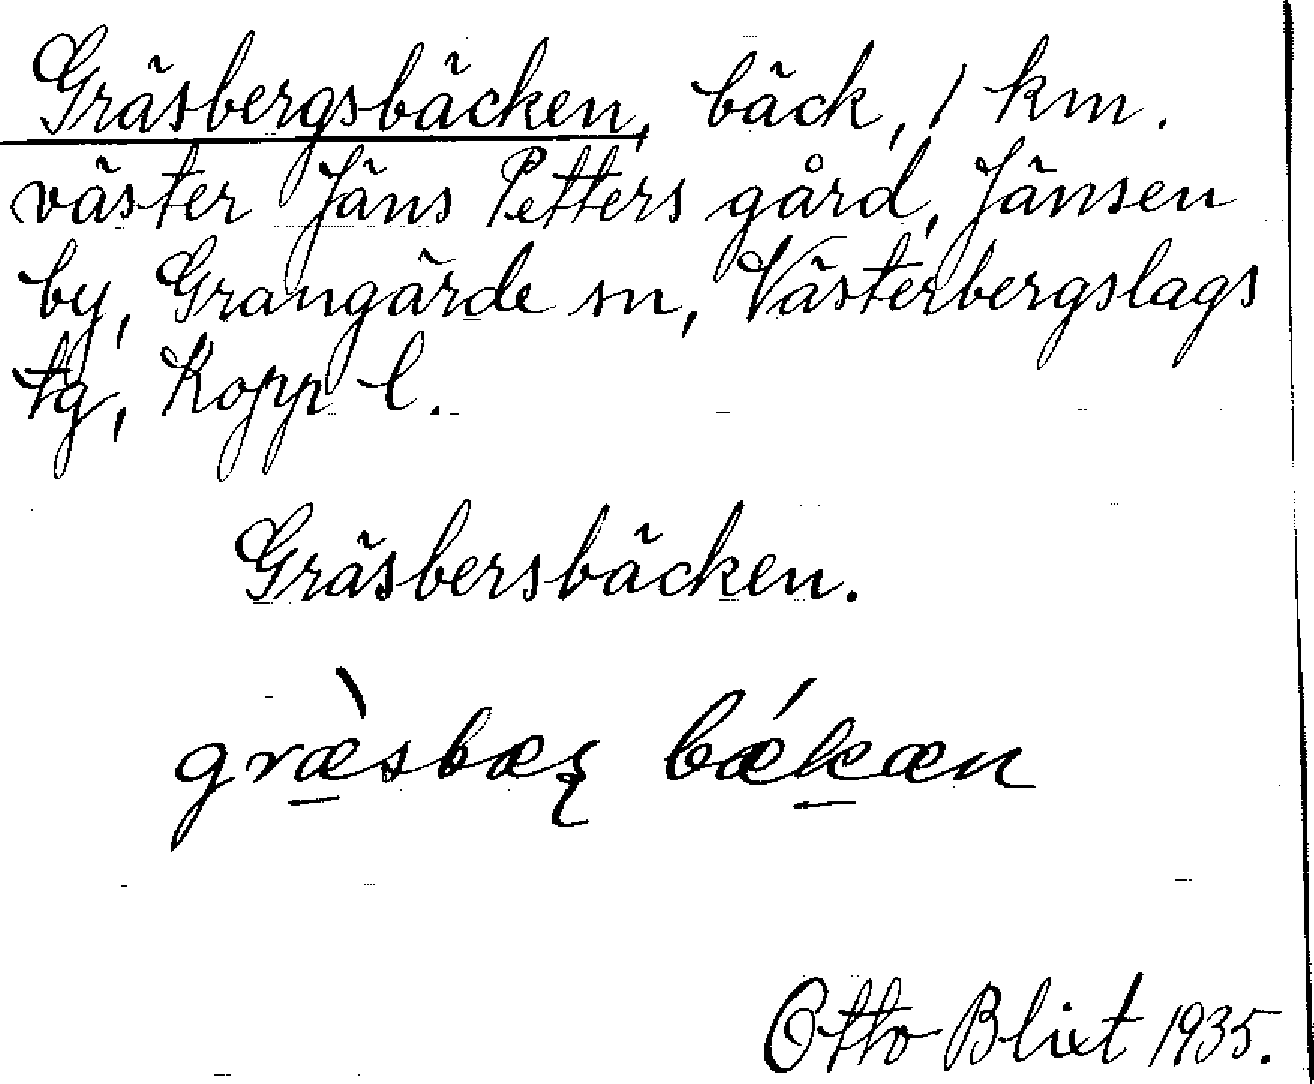 Gräsbergsbäcken, bäck, 1 km.
väster Jäns Petters gård, Jänsen
by, Grangärde sn, Västerbergslags
tg, Kopp l.
Gräsbersbäcken.
græ̀sbæʂ bǽkæn
Otto Blixt 1935.